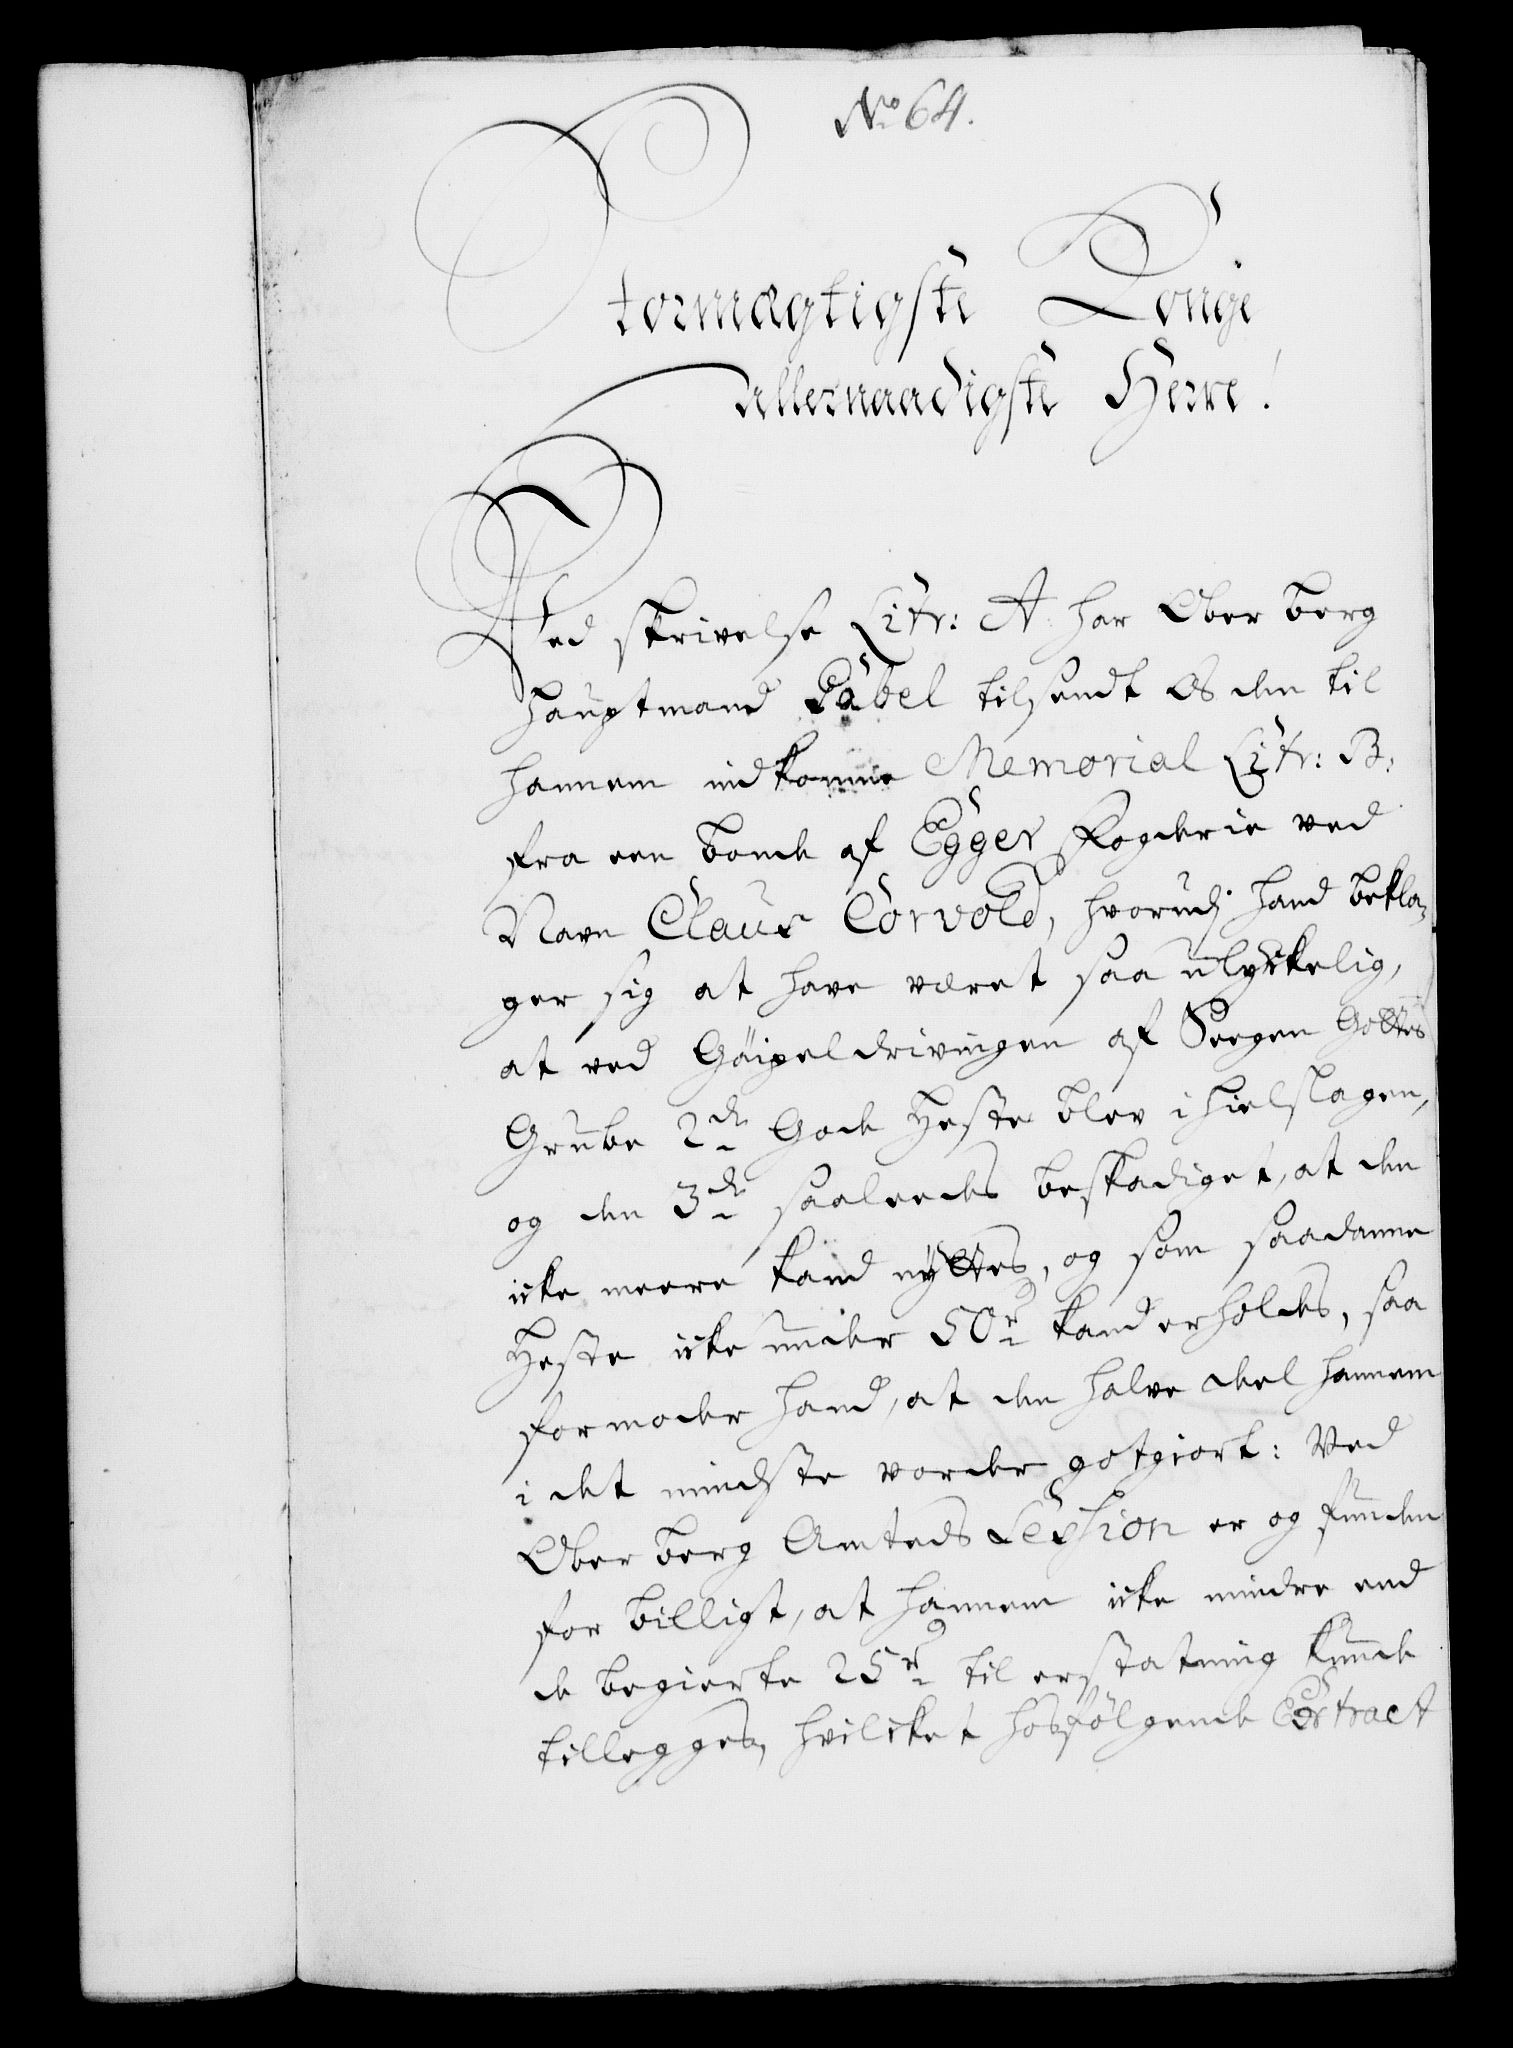 No 64.
Stormægtigste Konge
allernaadigste Herre!
Ved skrivelse Litr: A har Ober berg
hauptmand Täbel tilsendt Os den til
hannem indkomne Memorial Litr: B:
fra een bonde af Egger Fogderie ved
Navn Claus Corvold, hvorudj hand bekla-
ger sig at have været saa ulyckelig,
at ved Göipeldrivingen af Seegen Gottes
Grube 2de Gode Heste blev ihielslagen,
og den 3de saaleedes beskadiget, at den
icke meere kand nÿttes, og som saadanne
Heste icke under 50r kand erholdes, saa
formoder hand, at den halve deel hannem
i det mindste vorder gotgiort: Ved
Ober berg Amteds Session er og funden
for billigt, at hannem icke mindre end
de begierte 25r til erstatning kunde
tillegges, hvilcket hosfölgende Extract